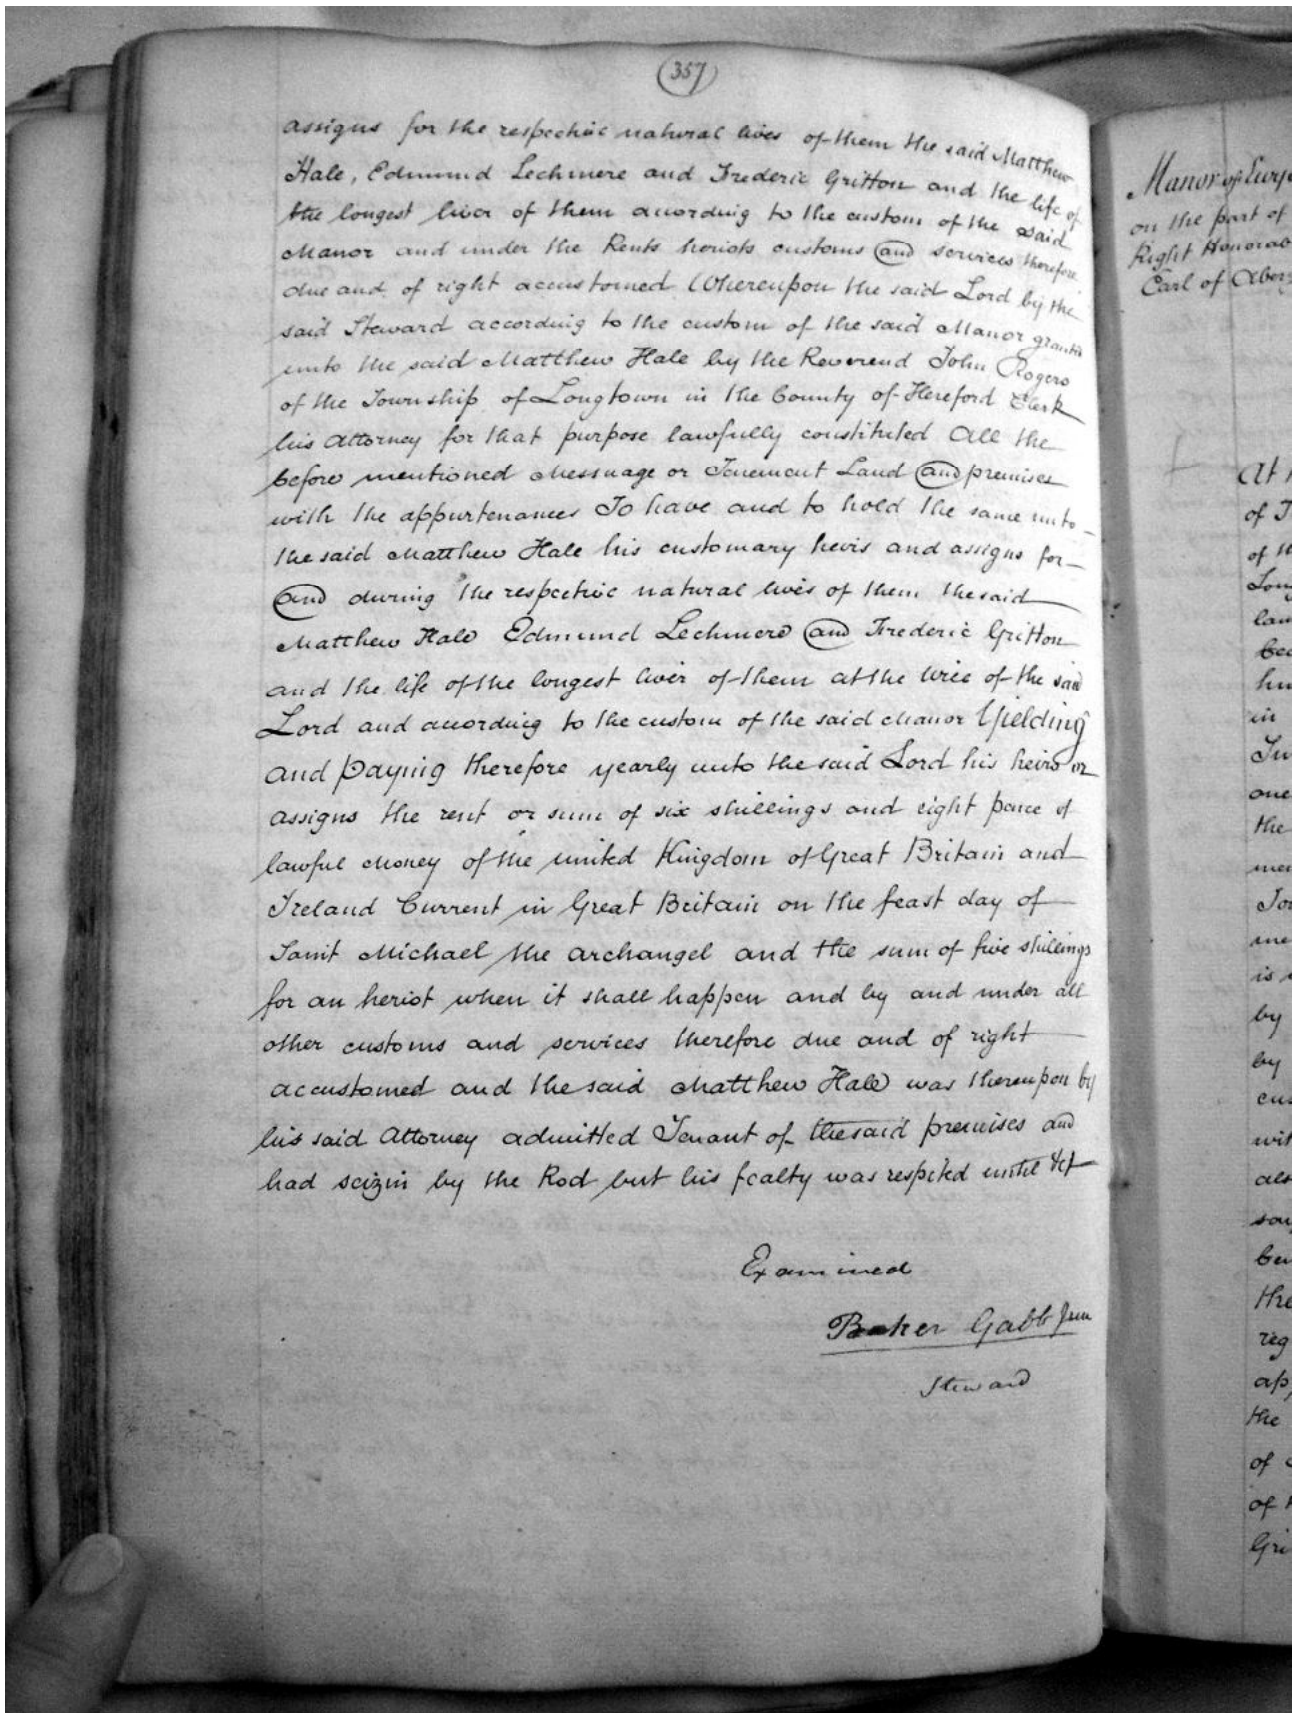 357
assigns for the respective natural lives of them the said Matthew
Hale, Edmund Lechmere and Frederic Gritton and the life of
the longest liver of them according to the custom of the said
Manor and under the Rents heriots customs and services therefore
due and of right accustomed Whereupon the said Lord by the
said Steward according to the custom of the said Manor granted
unto the said Matthew Hale by the Reverend John Rogers
of the Township of Longtown in the County of Hereford Clerk
his Attorney for that purpose lawfully constituted All the
before mentioned Messuage or Tenement Land and premises
with the appurtenances To have and to hold the same unto
the said Matthew Hale his customary heirs and assigns for
and during the respective natural lives of them the said
Matthew Hale Edmund Lechmere and Frederic Gritton
and the life of the longest liver of them at the will of the said
Lord and according to the custom of the said Manor Yielding
and paying therefore yearly unto the said Lord his heirs or
assigns the rent or sum of six shillings and eight pence of
lawful Money of the united Kingdom of Great Britain and
Ireland Current in Great Britain on the feast day of
Saint Michael the archangel and the sum of five shillings
for an heriot when it shall happen and by and under all
other customs and services therefore due and of right
accustomed and the said Matthew Hale was thereupon by
his said Attorney admitted Tenant of the said premises and
had seizin by the Rod but his fealty was respited until &c
Examined
Baker Gabb Jun
Steward
Manor of
on the part of
Right Honorab
Earl of Aber
At
of T
of th
Long
law
bec
hu
in
one
the
mea
me
is
by
by
cus
wit
als
sou
ben
the
reg
ap
the
of
of
Gri